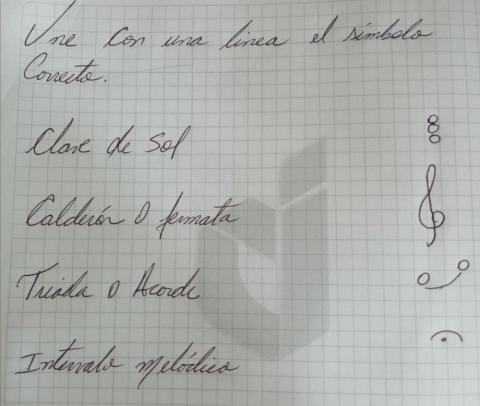 Une con una linea el símbolo
Correcto.
Clave de Sol
Calderón O fermata
Triada O Acorde
Intervalo melódico